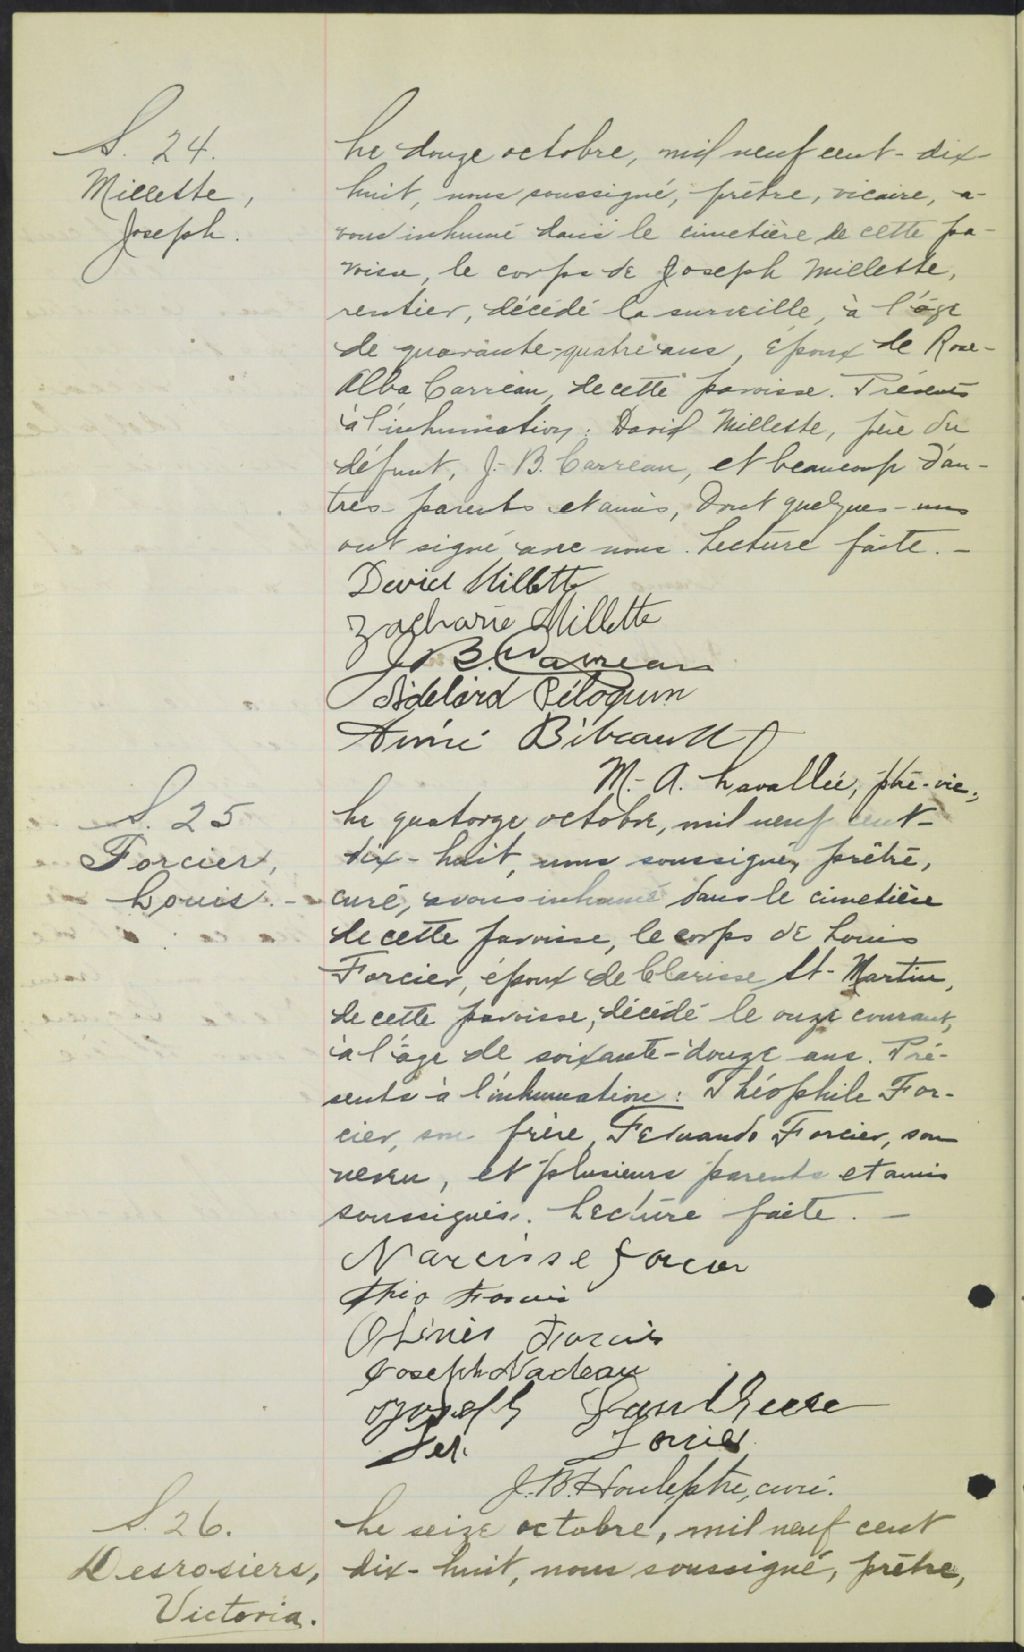 S. 24.
Millette,
Joseph.
Le douze octobre, mil neuf cent-dix-
huit, nous soussigné, prêtre, vicaire, a-
vons inhumé dans le cimetière de cette pa-
roisse, le corps de Joseph Millette,
rentier, décédé la surveille, à l'âge
de quarante-quatre ans, époux de Rose-
Alba Carreau, de cette paroisse. Présents
à l'inhumation: David Millette, père du
défunt, J.-B. Carreau, et beaucoup d'au-
tres parents et amis, dont quelques-uns
ont signé avec nous. Lecture faite. -
David Millette
Zacharie Millette
J B. Carreau
Adélard Péloquin
Aimé Bibeault
M.-A. Lavallée, ptre-vic.,
S. 25
Forcier,
Louis. -
Le quatorze octobre, mil neuf cent-
dix-huit, nous soussigné, prêtre,
curé, avons inhumé dans le cimetière
de cette paroisse, le corps de Louis
Forcier, époux de Clarisse St-Martin,
de cette paroisse, décédé le onze courant,
à l'âge de soixante-douze ans. Pré-
sents à l'inhumation: Théophile For-
cier, son frère, Fernando Forcier, son
neveu, et plusieurs parents et amis
soussignés. Lecture faite. -
Narcisse Forcier
Théo Forcier
Forcier
Joseph Nadeau
Joseph
Fer. Forcier
J.B. Houle ptre, curé.
S. 26.
Desrosiers,
Victoria.
Le seize octobre, mil neuf cent
dix-huit, nous soussigné, prêtre,